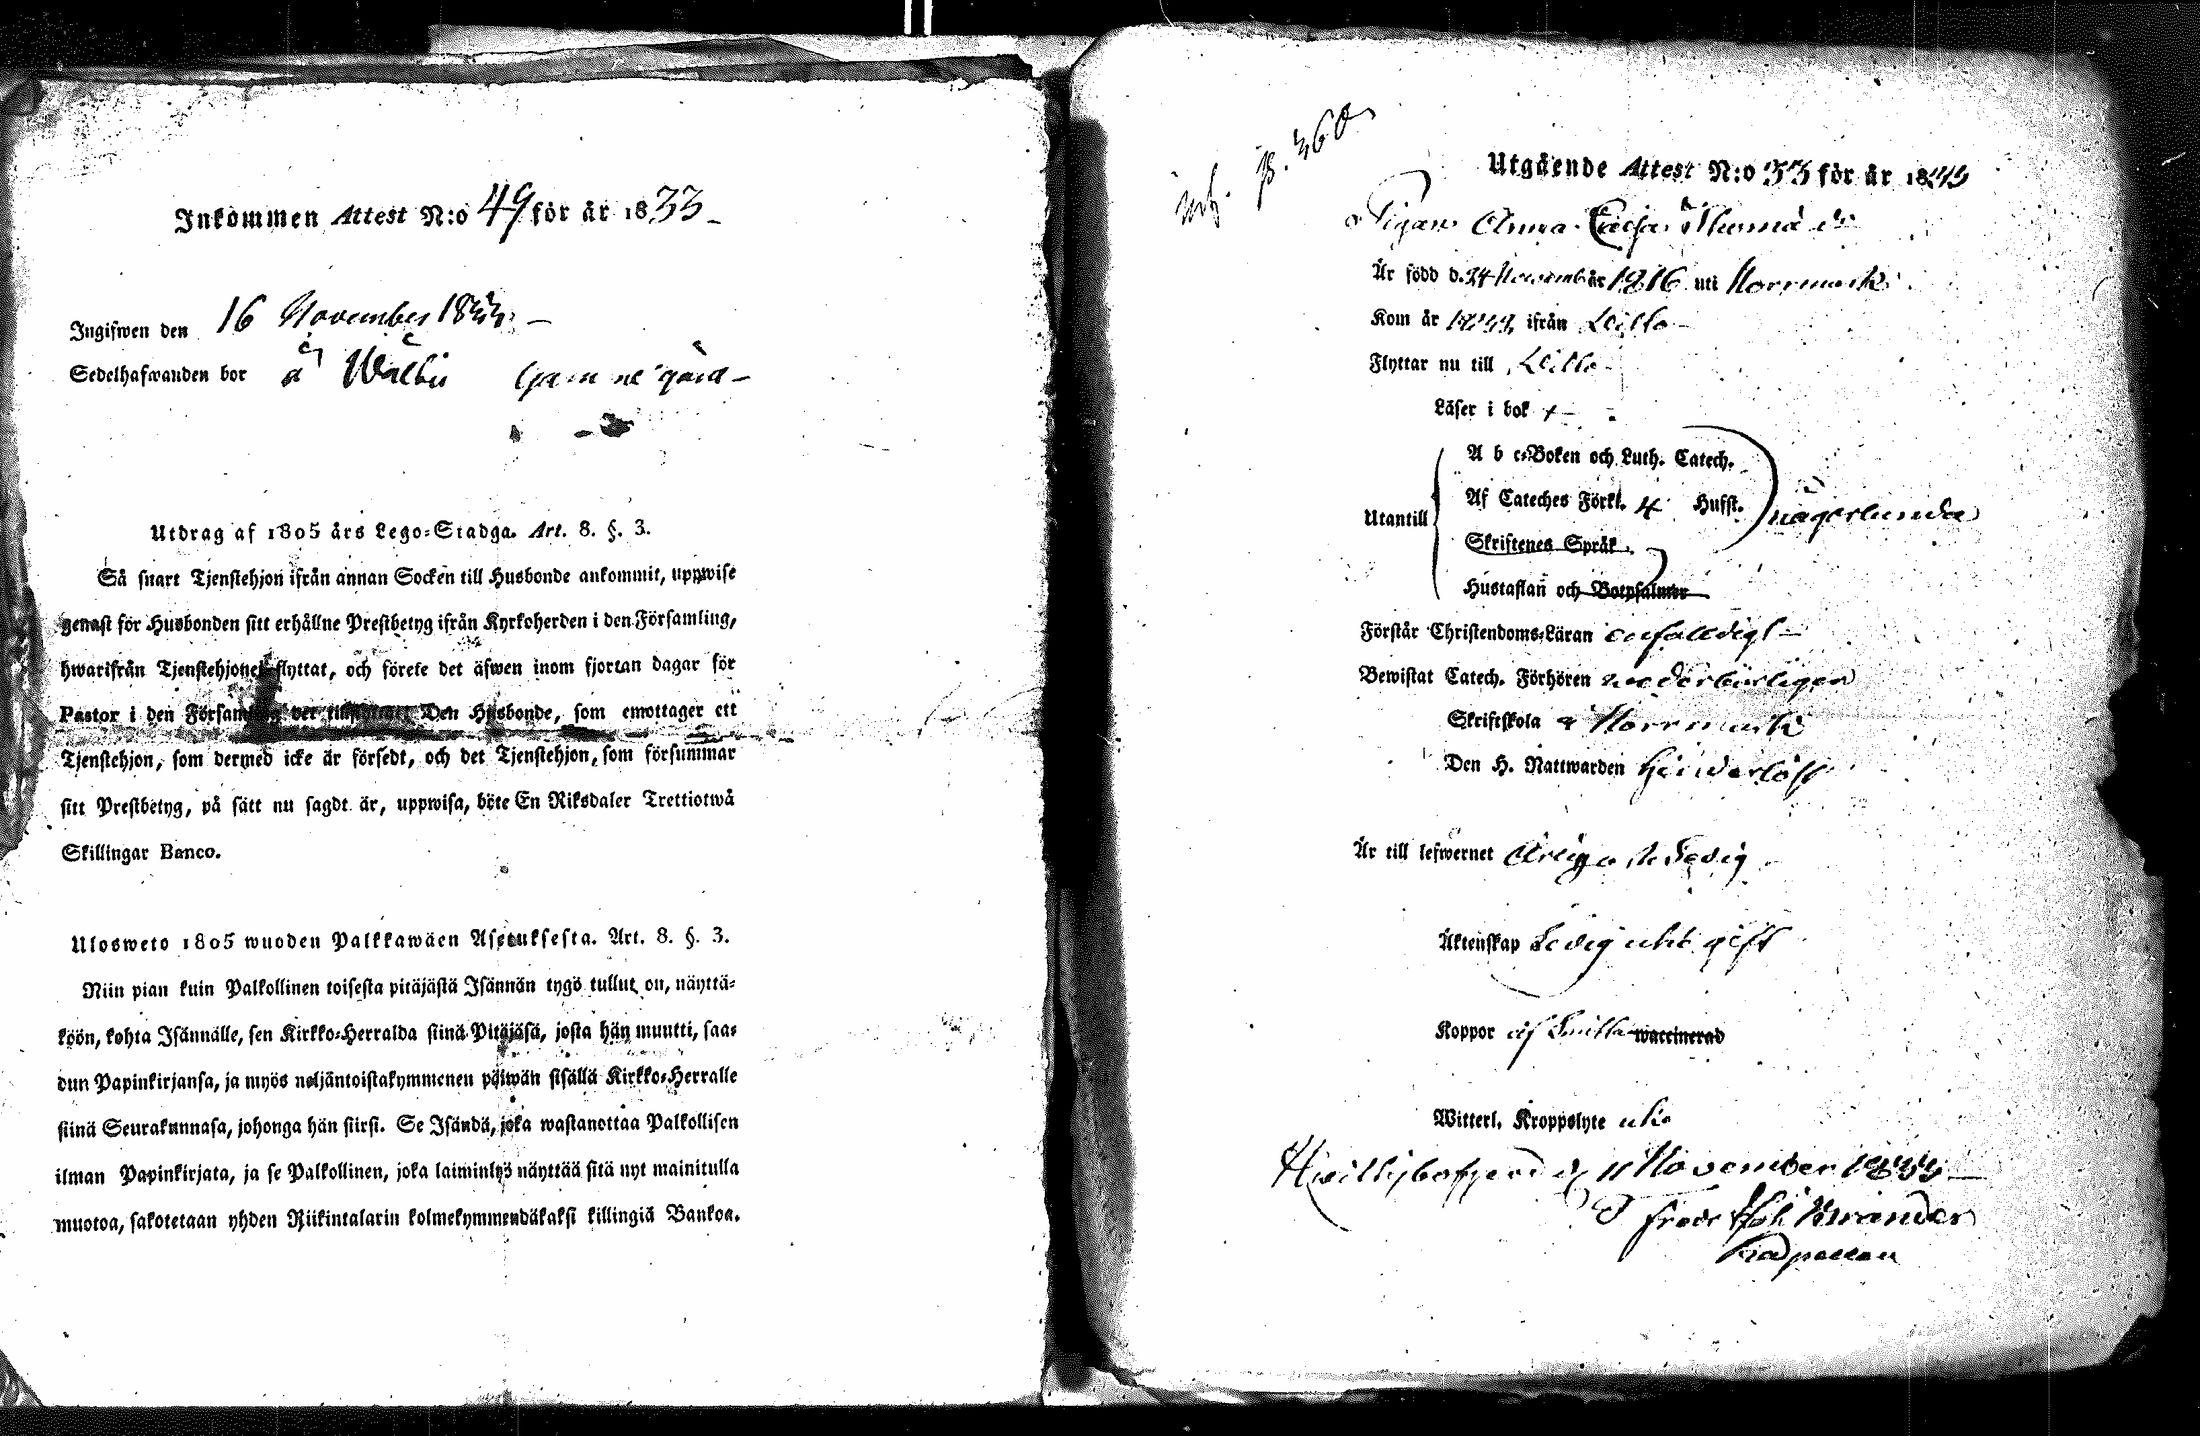 Inkommen Attest N:o 49 för år 1833
Ingifwen den 16 November 1833
Sedelhafwanden bor å Wälby Gammelgård
Utdrag af 1805 års Lego=Stadga. Art. 8. §. 3.
Så snart Tjenstehjon ifrån annan Socken till Husbonde ankommit, uppwise
genast för Husbonden sitt erhållne Prestbetyg ifrån Kyrkoherden i den Församling,
hwarifrån Tjenstehjonet flyttat, och förete det äfwen inom fjortan dagar för
Pastor i den Församling der tillflyttat. Den Husbonde, som emottager ett
Tjenstehjon, som dermed icke är försedt, och det Tjenstehjon, som försummar
sitt Prestbetyg, på sätt nu sagdt är, uppwisa, böte En Riksdaler Trettiotwå
Skillingar Banco.
Ulosweto 1805 wuoden Palkkawäen Asetuksesta. Art. 8. §. 3.
Niin pian kuin Palkollinen toisesta pitäjästä Isännän tygö tullut on, näyttä=
köön, kohta Isännälle, sen Kirkko=Herralda siinä Pitäjäsä, josta hän muutti, saa=
dun Papinkirjansa, ja myös neljäntoistakymmenen päiwän sisällä Kirkko=Herralle
siinä Seurakunnasa, johonga hän siirsi. Se Isändä, joka wastanottaa Palkollisen
ilman Papinkirjata, ja se Palkollinen, joka laiminlyö näyttää sitä nyt mainitulla
muotoa, sakotetaan yhden Riikintalarin kolmekymmendäkaksi killingiä Bankoa.
inf. p. 360
Utgående Attest N:o 33 för år 1833
Pigan Anna Caisa Thomæ dr
Är född d. 24 November år 1816 uti Norrmark
Kom år ifrån Leilla
Flyttar nu till
Läser i bok +
A b c=Boken och Luth. Catech.
Utantill Af Cateches Förkl. 4 Hufst. någorlunda
Skriftenes Språk
Hustaflan och Botpsalmer
Förstår Christendoms=Läran enfaldigt
Bewistat Catech. Förhören wederbörligen
Skriftskola i Norrmark
Den H. Nattwarden Hinderlöst
Är till lefwernet ärlig o. sedig
Äktenskap Ledig till gift
Koppor waccinerad
Witterl. Kroppslyte
Hwittisbofjerd d. 11 November 1833
Kapellan